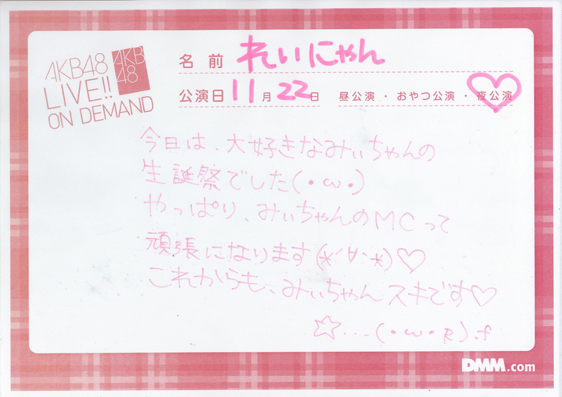 AKB48
LIVE!!
ON DEMAND
AKB
48
名前 れいにゃん
公演日 11月22日 昼公演・おやつ公演・夜公演
今日は、大好きなみぃちゃんの
生誕祭でした(・ω・)
やっぱり、みぃちゃんのMCって
頑張になります(*´∀`*)♡
これからも、みぃちゃんスキです♡
☆...(・ω・R).f
DMM.com